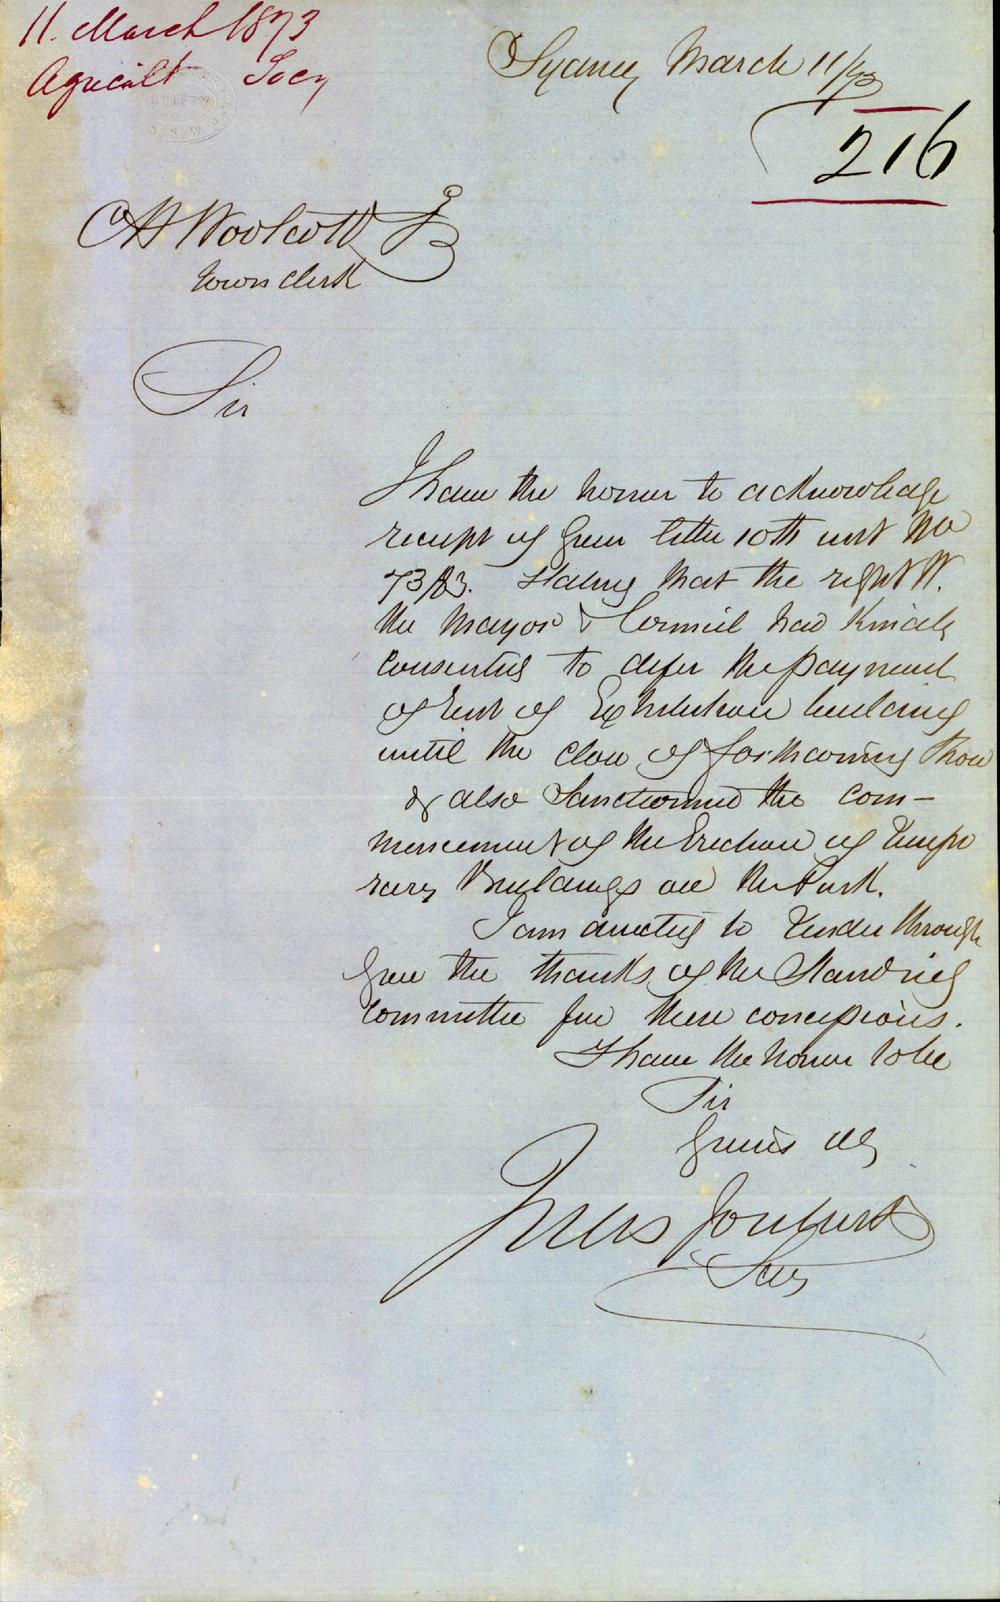 11. March 1873
Agricult Socy
SOCIETY
N.S.W.
Sydney March 11/73
216
C H Woolcott
Town Clerk
Sir
I have the honor to acknowledge
receipt of your letter 10th inst No
73/83. Stating that the right W.
the Mayor & Council had kindly
consented to defer the payment
of rent of Exhibition building
until the close of forthcoming Show
& also Sanctioned the com-
mencement of the Erection of Tempo
rary Buildings on the Park.
I am directed to tender through
you the thanks of the Standing
Committee for these concessions.
I have the honor to be
Sir
Yours
Jules Joubert
Secy